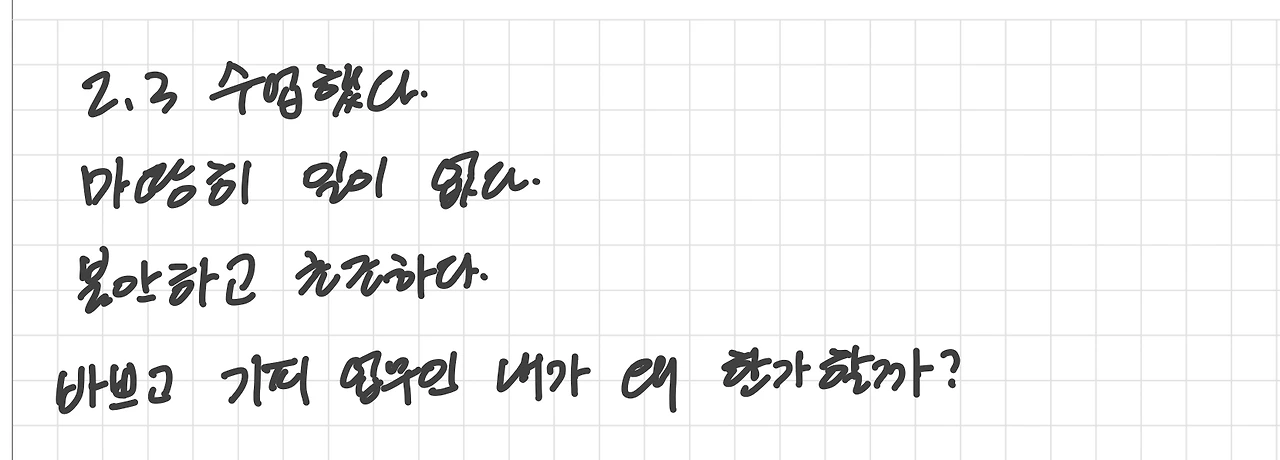 2.3 수업했다.
마땅히 일이 없다.
불안하고 초조하다.
바쁘고 기피 업무인 내가 왜 한가할까?